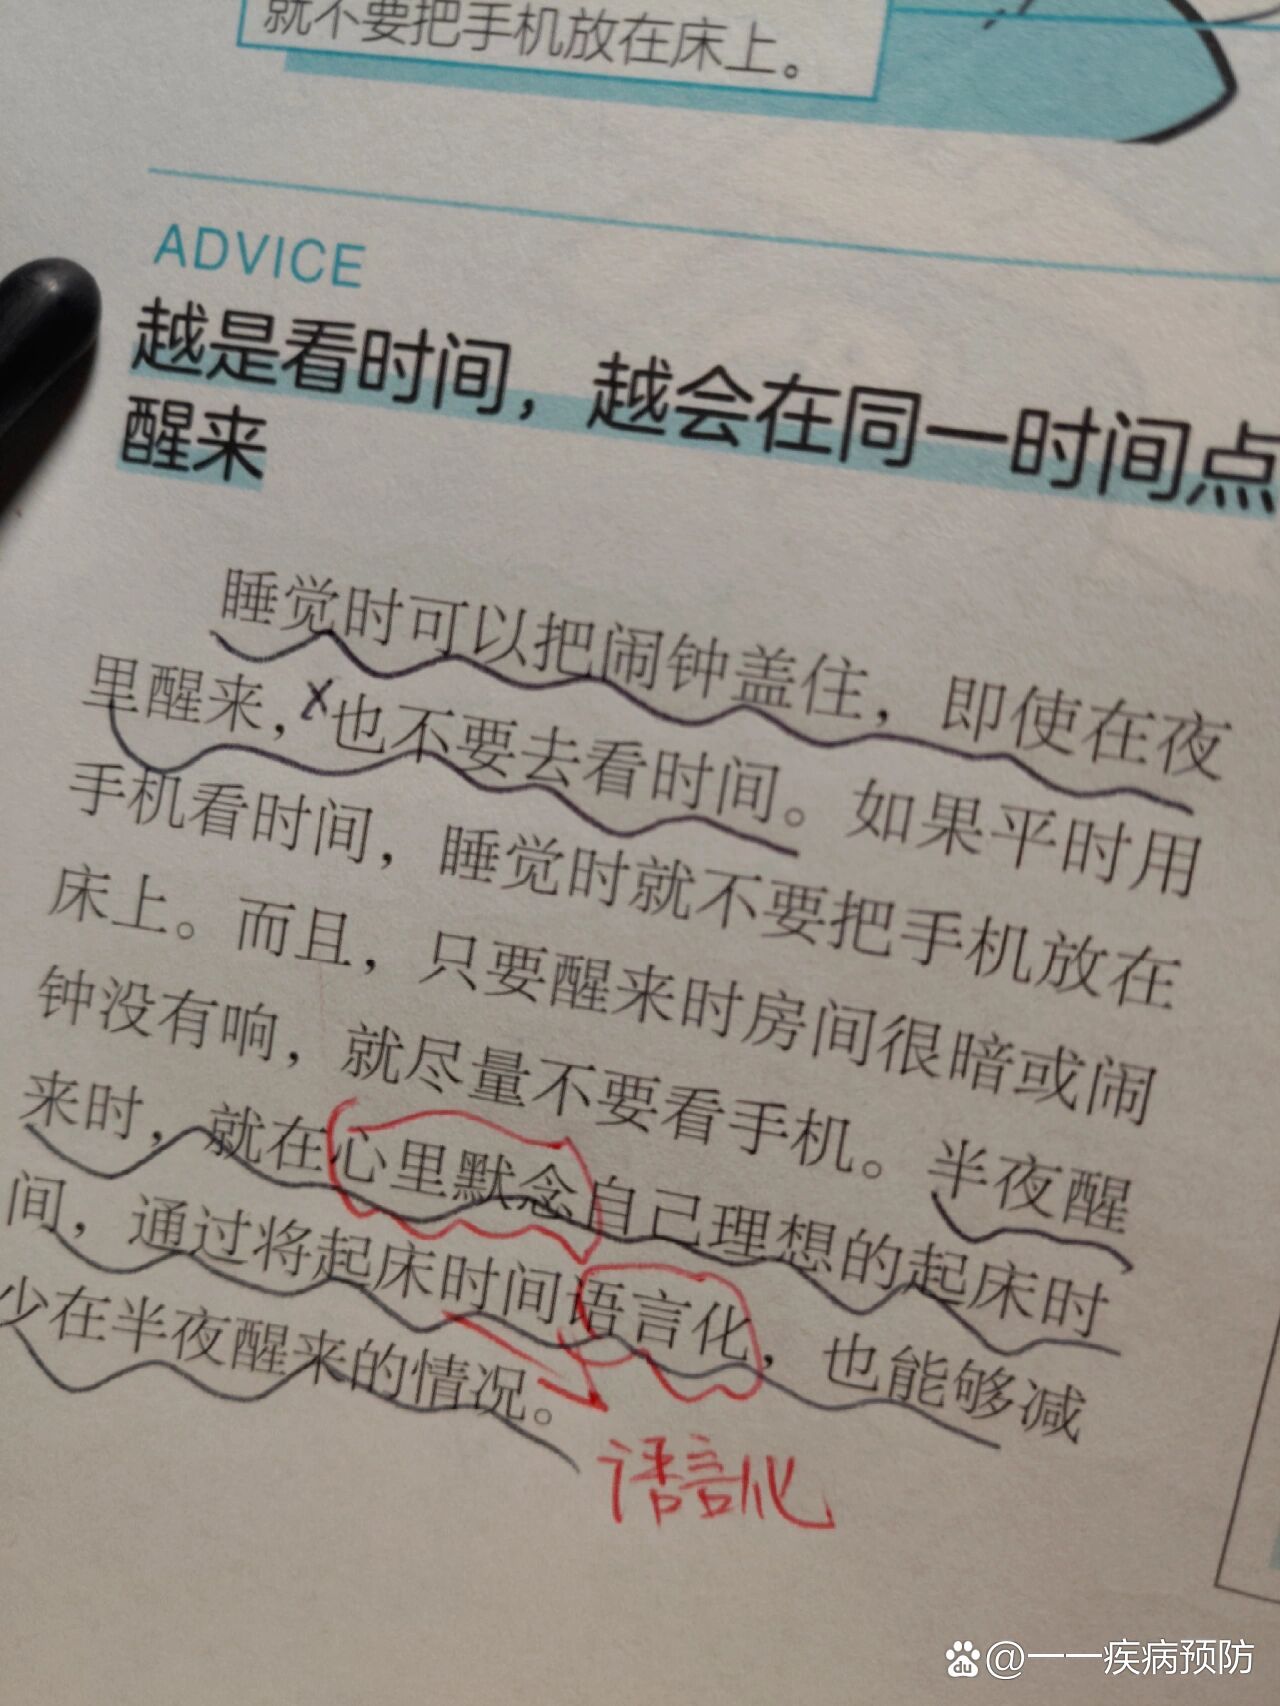 就不要把手机放在床上。
ADVICE
越是看时间，越会在同一时间点
醒来
睡觉时可以把闹钟盖住，即使在夜
里醒来，也不要去看时间。如果平时用
手机看时间，睡觉时就不要把手机放在
床上。而且，只要醒来时房间很暗或闹
钟没有响，就尽量不要看手机。半夜醒
来时，就在心里默念自己理想的起床时
间，通过将起床时间语言化，也能够减
少在半夜醒来的情况。
语言化
@一一疾病预防